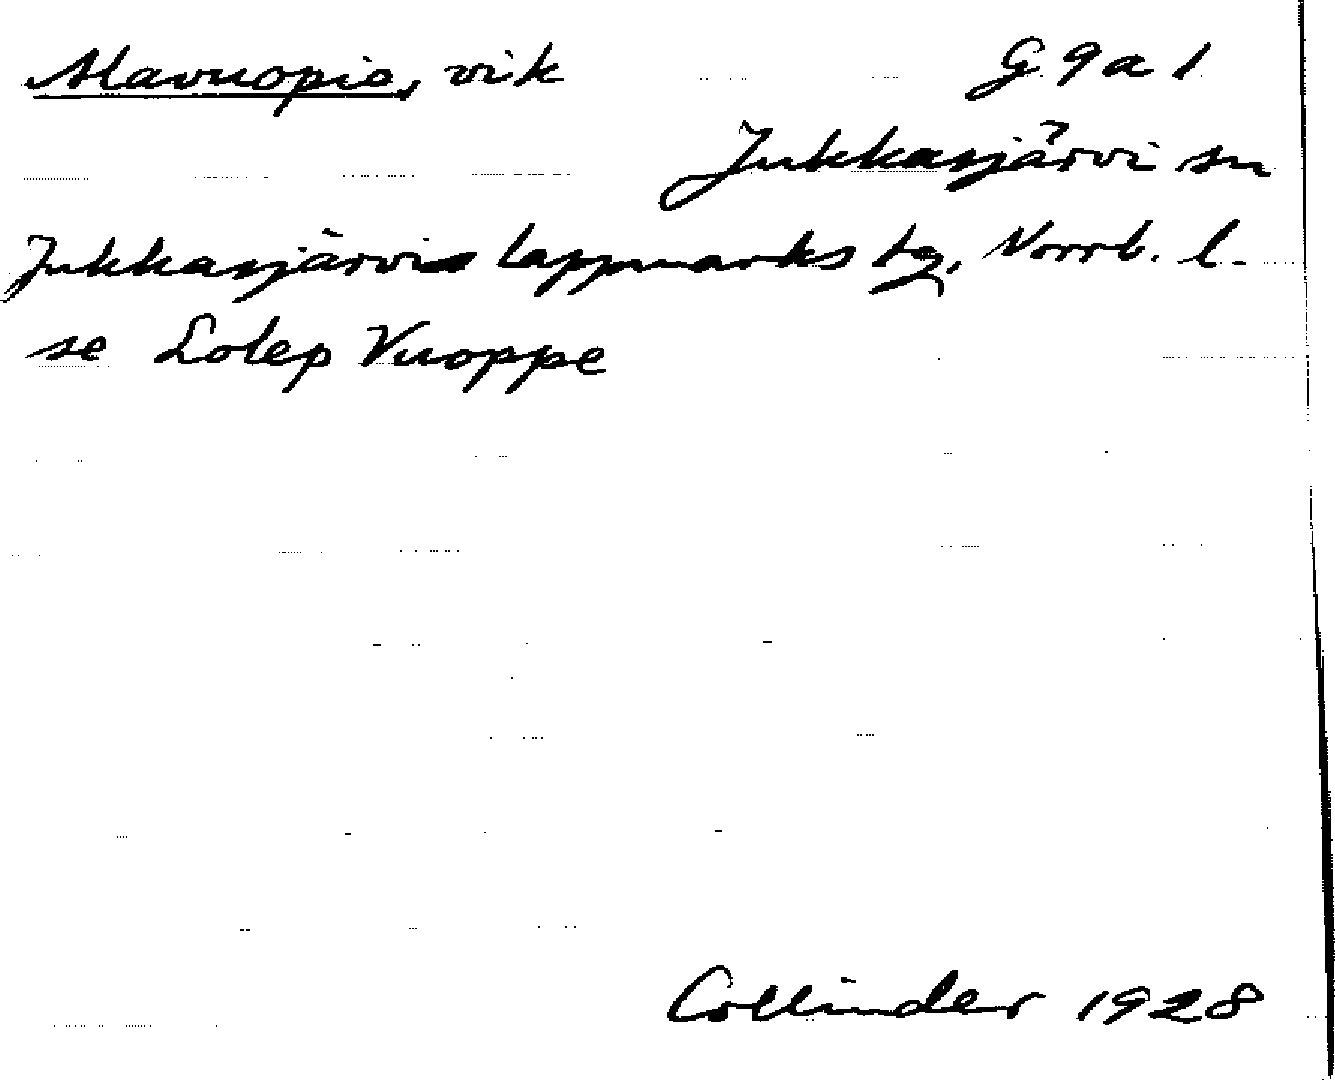 Alavuopio, vik G 9 a 1
Jukkasjärvi sn
Jukkasjärvi lappmarks tg, Norrb. l.
se Lolep Vuoppe
Collinder 1928